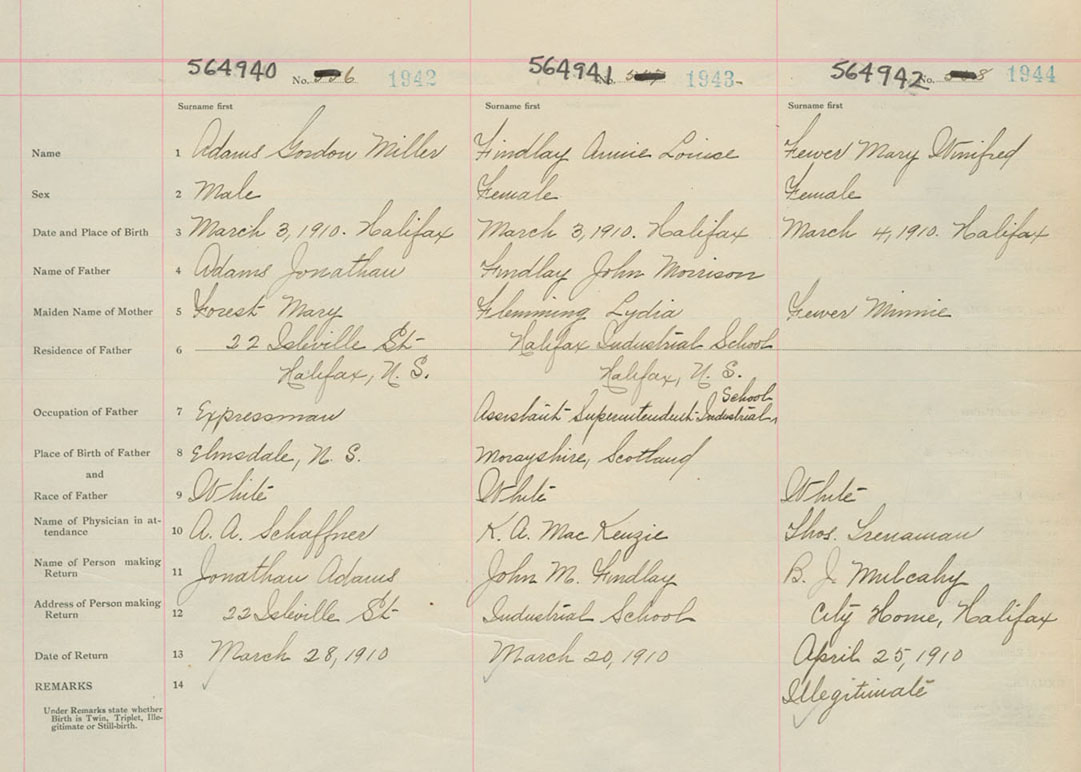 564940 No. 6 1942 564941 No. 1943 564942 No. 8 1944
Surname first Surname first Surname first
Name 1 Adams Gordon Miller Findlay Annie Louise Fewer Mary Winifred
Sex 2 Male Female Female
Date and Place of Birth 3 March 3, 1910. Halifax March 3, 1910. Halifax March 4, 1910. Halifax
Name of Father 4 Adams Jonathan Findlay John Morrison
Maiden Name of Mother 5 Forest Mary Flemming Lydia Fewer Minnie
Residence of Father 6 22 Isleville St Halifax Industrial School
Halifax, N. S. Halifax, N. S.
School
Occupation of Father 7 Expressman Assistant Superintendent Industrial
Place of Birth of Father 8 Elmsdale, N. S. Morayshire, Scotland
and
Race of Father 9 White White White
Name of Physician in at-
tendance 10 A. A. Schaffner K. A. MacKenzie Thos. Trenaman
Name of Person making
Return 11 Jonathan Adams John M. Findlay B. J. Mulcahy
Address of Person making
Return 12 22 Isleville St Industrial School City Home, Halifax
Date of Return 13 March 28, 1910 March 20, 1910 April 25, 1910
REMARKS 14 Illegitimate
Under Remarks state whether
Birth is Twin, Triplet, Ille-
gitimate or Still-birth.